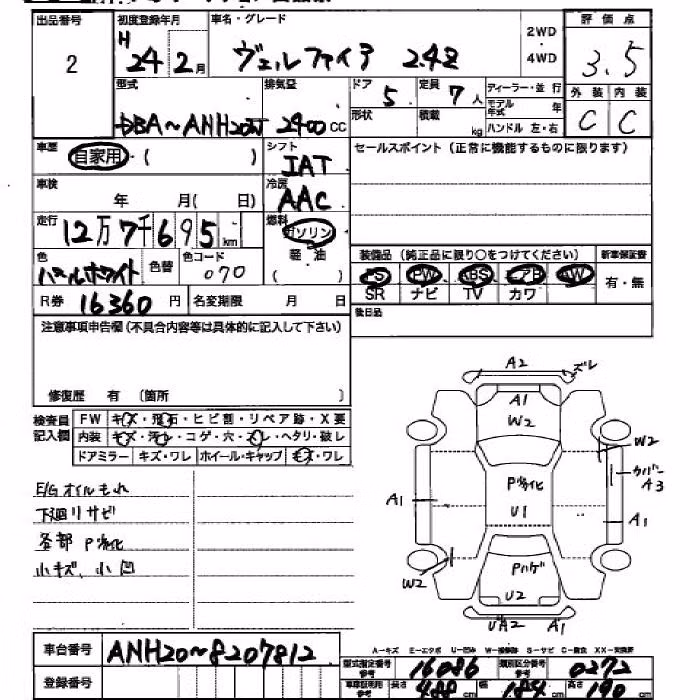 出品番号 初度登録年月 車名・グレード 2WD ・ 4WD 評価点
2 H 24年 2月 ヴェルファイア 2.4Z 3.5
型式 排気量 ドア 5 定員 7人 ディーラー・並行 外装 内装
DBA~ANH20W 2400 CC 形状 積載 kg モデル年式 年 C C
ハンドル 左・右
車歴 自家用・( ) シフト IAT セールスポイント (正常に機能するものに限ります)
車検 年 月( 日) 冷房 AAC
走行 12万7千695km 燃料 ガソリン
軽油
( )
色 パールホワイト 色替 色コード 070
装備品 (純正品に限り○をつけてください) 新車保証書
PS PW ABS エアB AW 有・無
SR ナビ TV カワ
R券 16360 円 名変期限 月 日 後日品
注意事項申告欄 (不具合内容等は具体的に記入して下さい)
修復歴 有 〔箇所 〕
検査員記入欄 FW キズ・飛石・ヒビ割・リペア跡・X要
内装 キズ・汚レ・コゲ・穴・スレ・ヘタリ・破レ
ドアミラー キズ・ワレ ホイール・キャップ キズ・ワレ
E/Gオイルもれ
下廻リサビ
各部 P劣化
小キズ、小凹
A2 ズレ
A1
W2
W2
カバー
A3
P劣化
U1
A1
A1
W2
Pハゲ
U2
UA2 A1
車台番号 ANH20~8207812
登録番号
A-キズ E-エクボ U-凹み W-補修跡 S-サビ C-腐食 XX-交換済
型式指定番号 参考 16086 類別区分番号 参考 0272
車庫証明用 参考 長さ 488 cm 幅 184 cm 高さ 190 cm